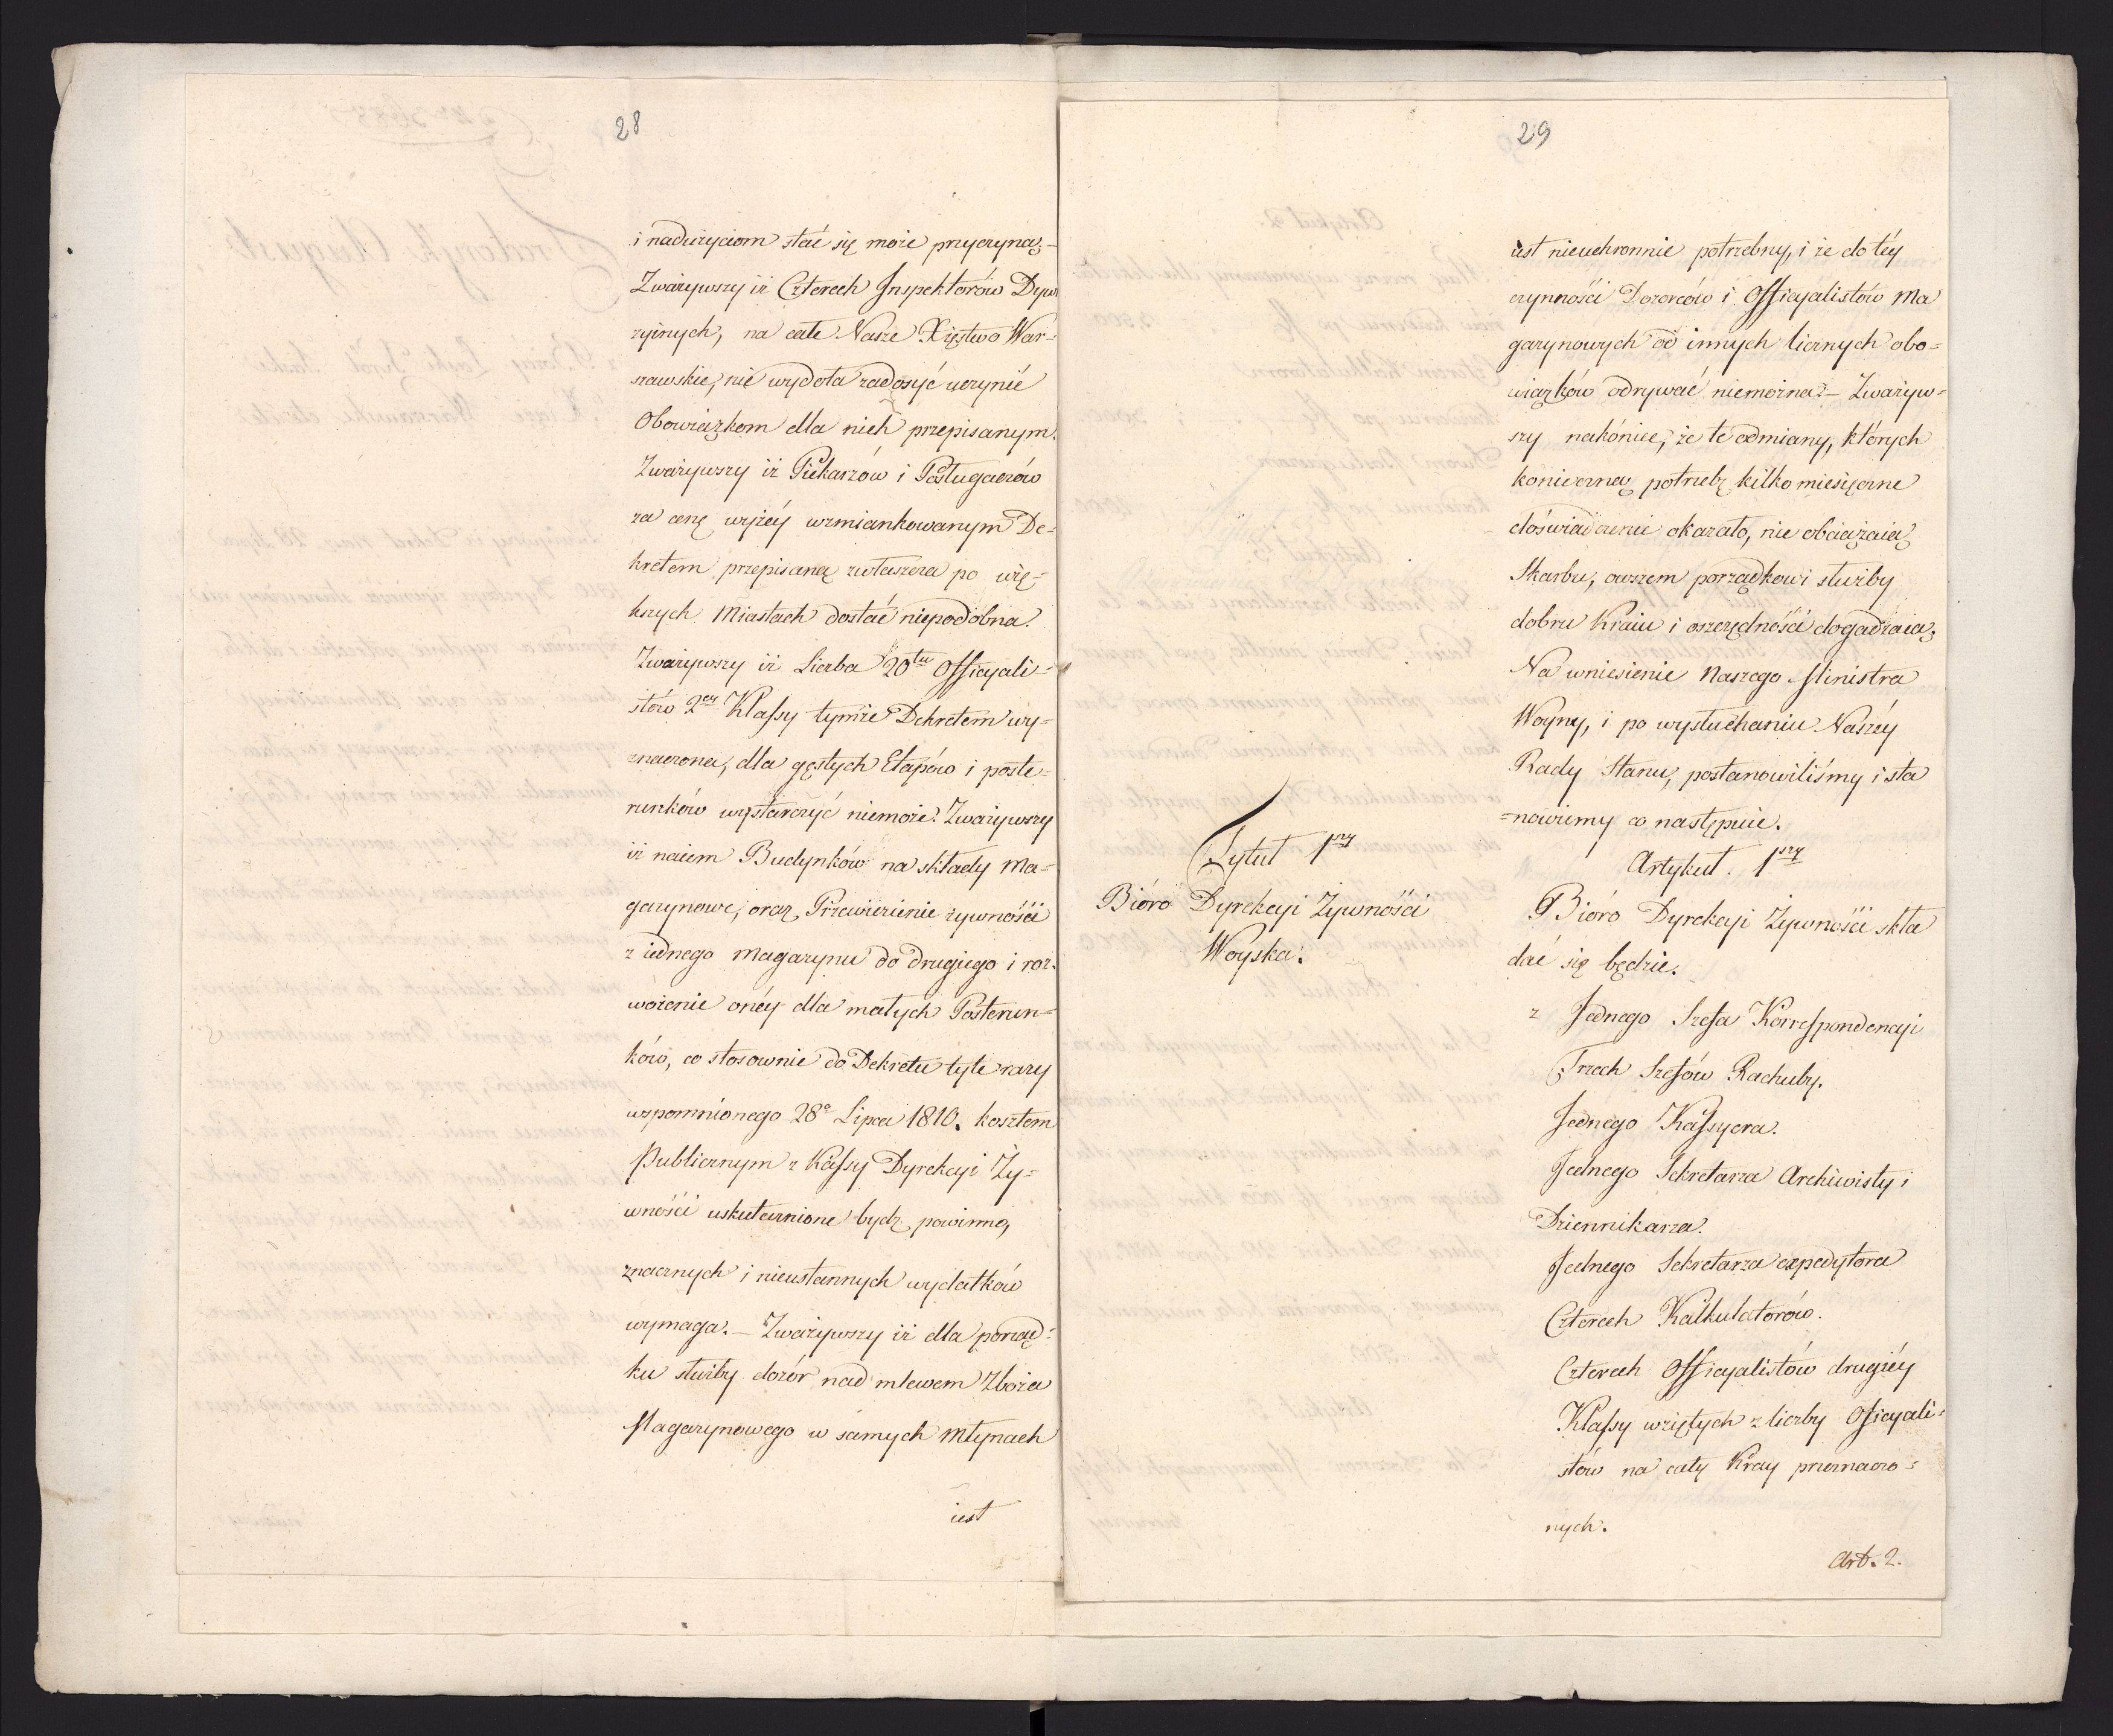 28
i nadużyciom stać się może przyczyną.–
Zważywszy iż Czterech Inspektorów Dywi
zyinych, na całe Nasze Xięstwo War-
szawskie, nie wydoła zadosyć uczynić
Obowiązkom dla nich przepisanym.
Zważywszy iż Piekarzów i Posługaczów
za cenę wyżéy wzmiankowanym De-
kretem przepisaną zwłaszcza po wię-
kszych Miastach dostać niepodobna.
Zważywszy iż Liczba 20tu Officyali-
stów 2ey Klassy tymże Dekretem wy-
znaczona, dla gęstych Etapów i poste-
runków wystarczyć niemoże. Zważywszy
iż naiem Budynków na składy Ma-
gazynowe, oraz Przewiezienie żywności
z iednego Magazynu do drugiego i roz-
wożenie onéy dla małych Posterun-
ków, co stosownie do Dekretu tyle razy
wspomnionego 28o Lipca 1810. kosztem
Publicznym z Kassy Dyrekcyi Ży-
wności uskutecznione bydz powinno,
znacznych i nieustannych wydatków
wymaga.– Zważywszy iż dla porząd-
ku służby dozór nad mlewem Zboża
Magazynowego w samych Młynach
iest
29
iest nieuchronnie potrzebny, i że do téy
czynności Dozorców i Officyalistów Ma
gazynowych od innych licznych obo-
wiązków odrywać niemożna.– Zważyw-
szy nakóniec, że te odmiany, których
konieczną potrzebę kilko miesięczne
doświadczenie okazało, nie obciążaią
Skarbu, owszem porządkowi służby
dobru Kraiu i oszczędności dogadzaią.
Na wniesienie Naszego Ministra
Woyny, i po wysłuchaniu Naszéy
Rady Stanu, postanowiliśmy i sta
=nowiemy co następuie.
Tytuł 1szy
Bióro Dyrekcyi Żywności
Woyska.
Artykuł. 1szy
Bióro Dyrekcyi Żywności skła
dać się będzie.
z Jednego Szefa Korrespondencyi
Trzech Szefów Rachuby.
Jednego Kassyera.
Jednego Sekretarza Archiwisty i
Dziennikarza.
Jednego Sekretarza expedytora
Czterech Kalkulatorów.
Czterech Officyalistów drugiéy
Klassy wziętych z liczby Oficyali-
stów na cały Kray przeznaczo-
nych.
Art. 2.